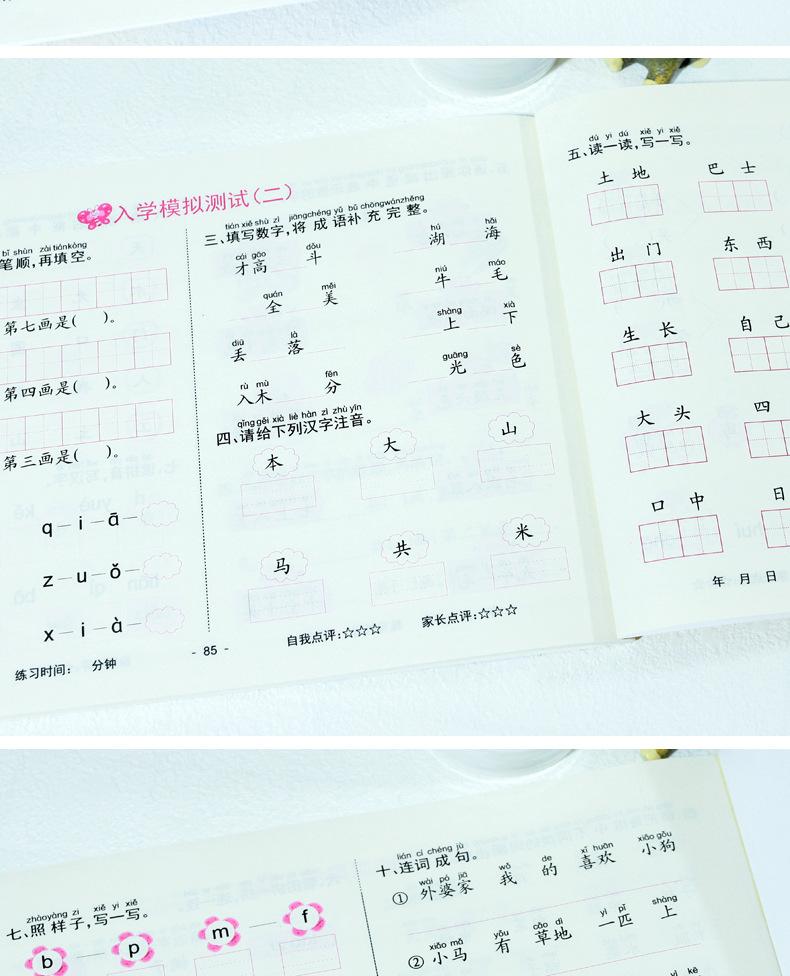 入学模拟测试(二)
bǐ shùn zài tiánkòng
笔顺,再填空。
第七画是( )。
第四画是( )。
第三画是( )。
q — i — ā —
z — u — ǒ —
x — i — à —
练习时间: 分钟
- 85 -
tián xiě shù zì jiāngchéng yǔ bǔ chōngwánzhěng
三、填写数字,将成语补充完整。
cái gāo dǒu hú hǎi
才高 斗 湖 海
quán měi niú máo
全 美 牛 毛
diū là shàng xià
丢 落 上 下
rù mù fēn guāng sè
入木 分 光 色
qǐng gěi xià liè hàn zì zhù yīn
四、请给下列汉字注音。
本 大 山
马 共 米
自我点评:☆☆☆ 家长点评:☆☆☆
dú yi dú xiě yi xiě
五、读一读,写一写。
土 地 巴 士
出 门 东 西
生 长 自 己
大 头 四
口 中 日
年 月 日
zhàoyàng zi xiě yi xiě
七、照样子,写一写。
b — p m — f
lián cí chéng jù
十、连词成句。
wài pó jiā wǒ de xǐ huān xiǎo gǒu
① 外婆家 我 的 喜欢 小狗
xiǎo mǎ yǒu cǎo dì yì pǐ shàng
② 小马 有 草地 一匹 上
yì kē